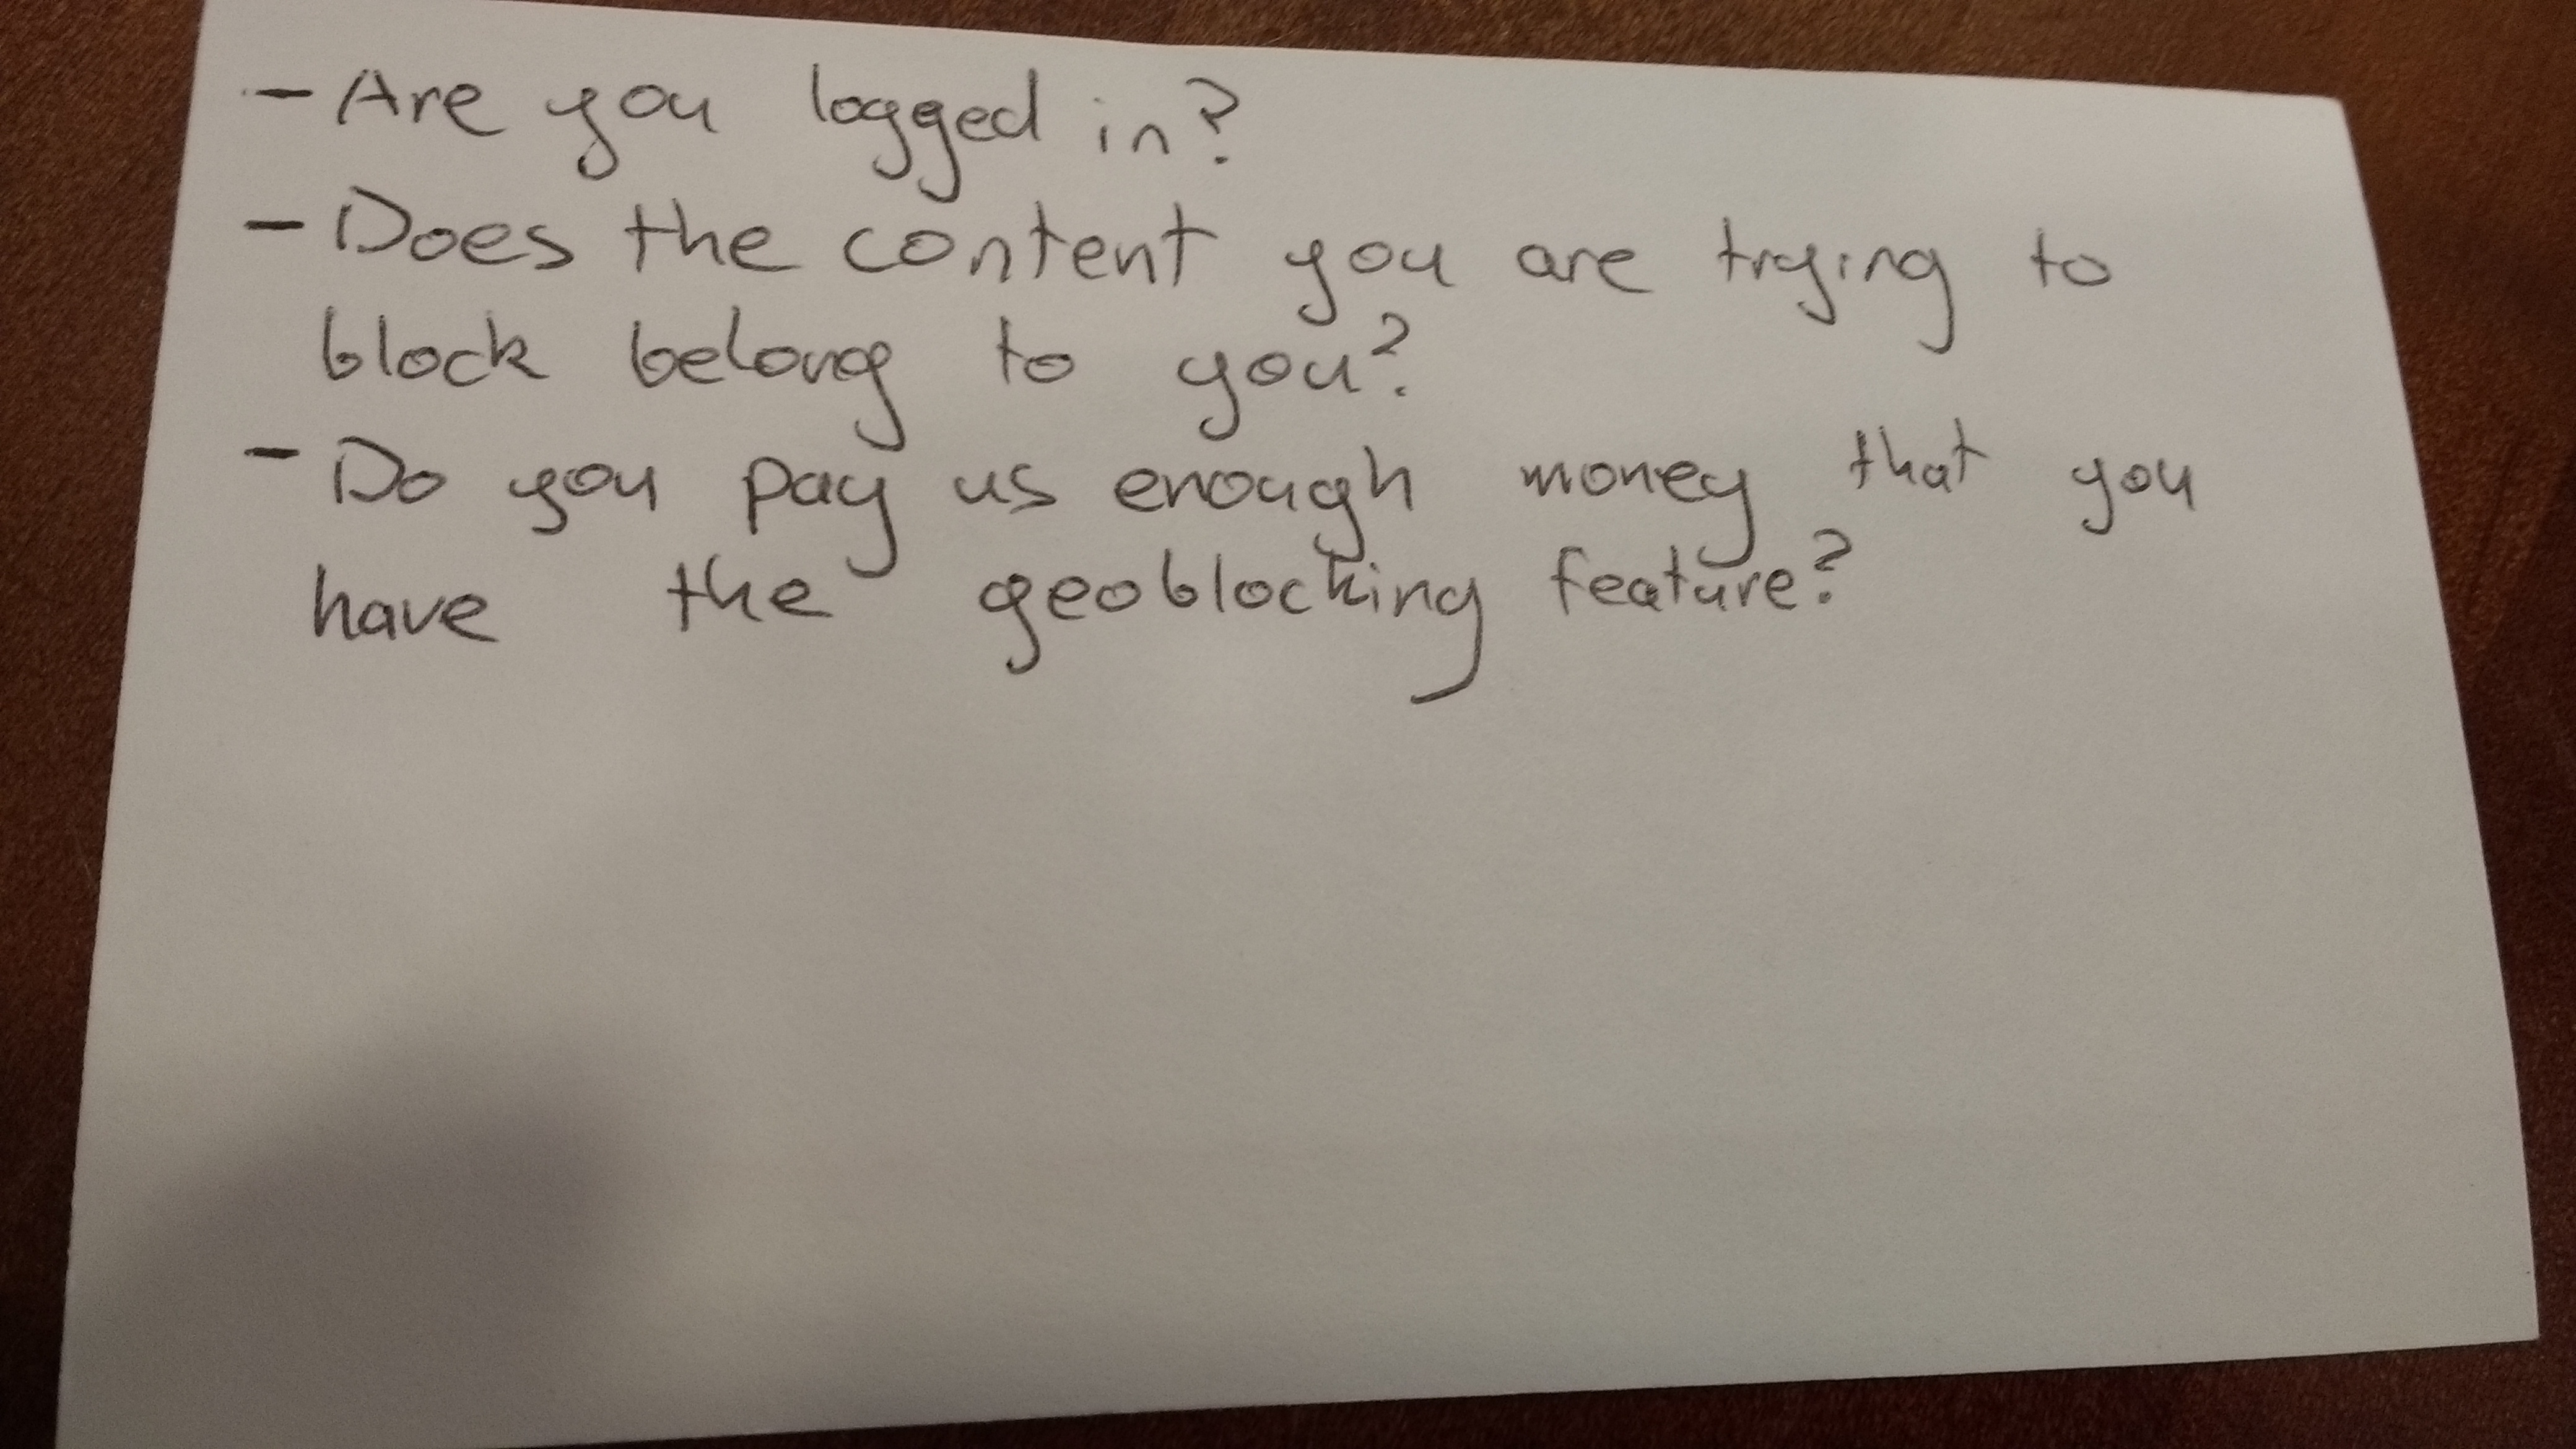 - Are you logged in?
- Does the content you are trying to
block belong to you?
- Do you pay us enough money that you
have the geoblocking feature?